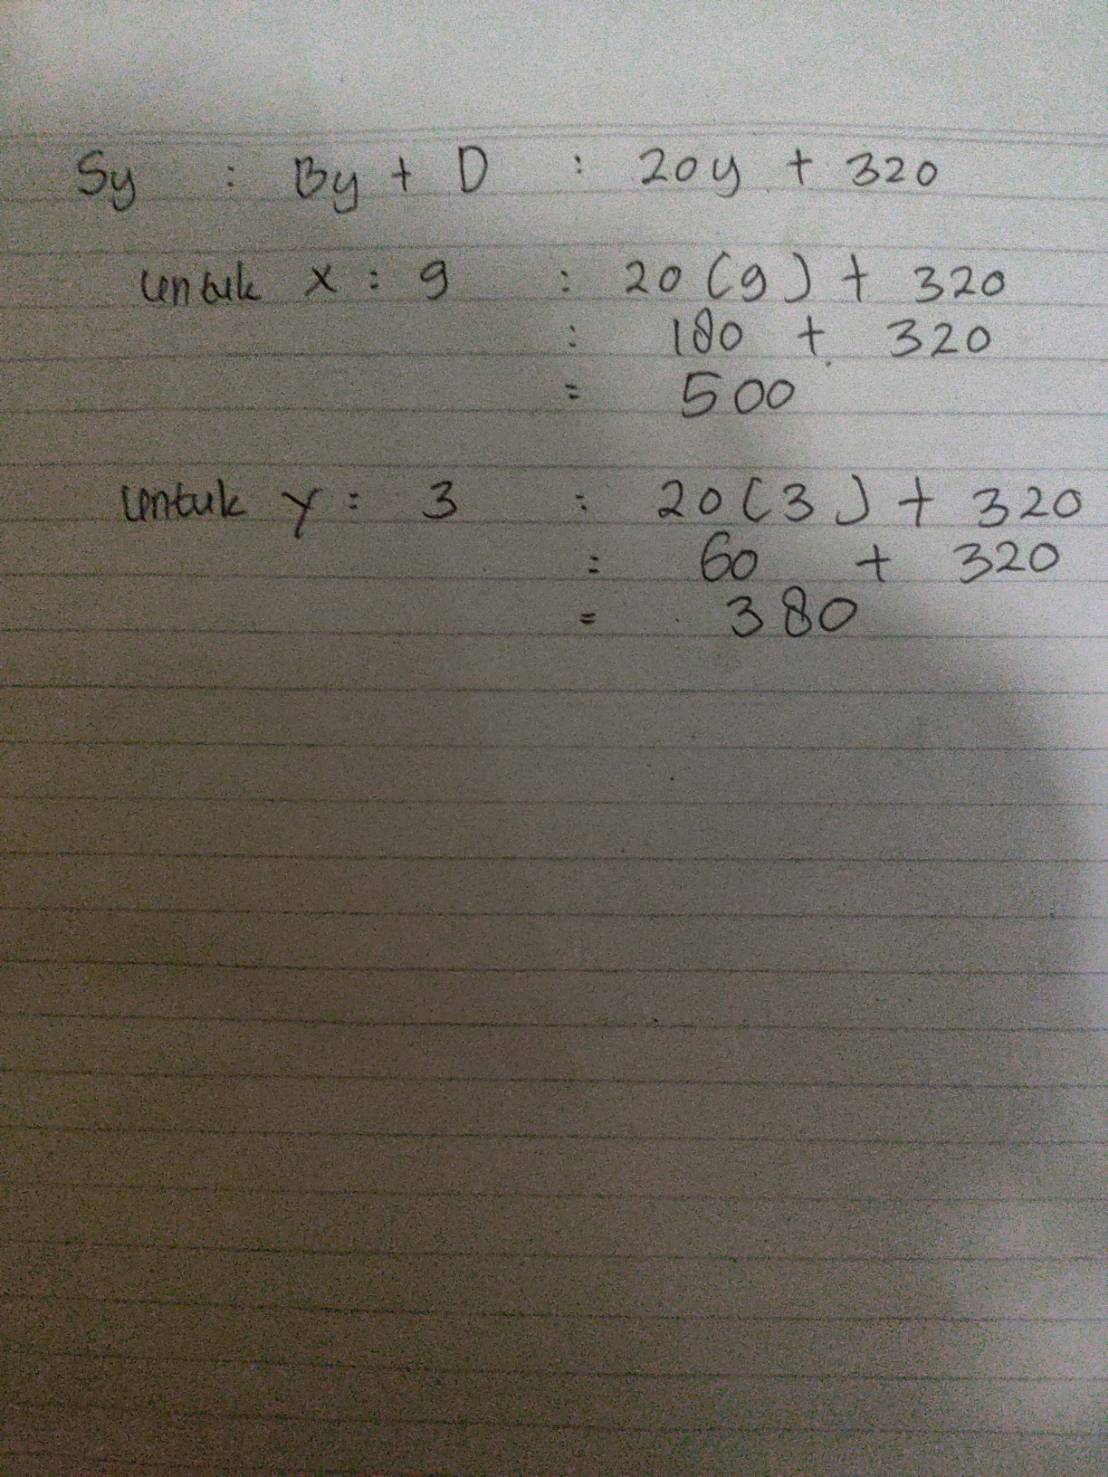 Sy : By + D : 20y + 320
untuk x : 9 : 20 (9) + 320
: 180 + 320
= 500
untuk y : 3 : 20 (3) + 320
= 60 + 320
= 380